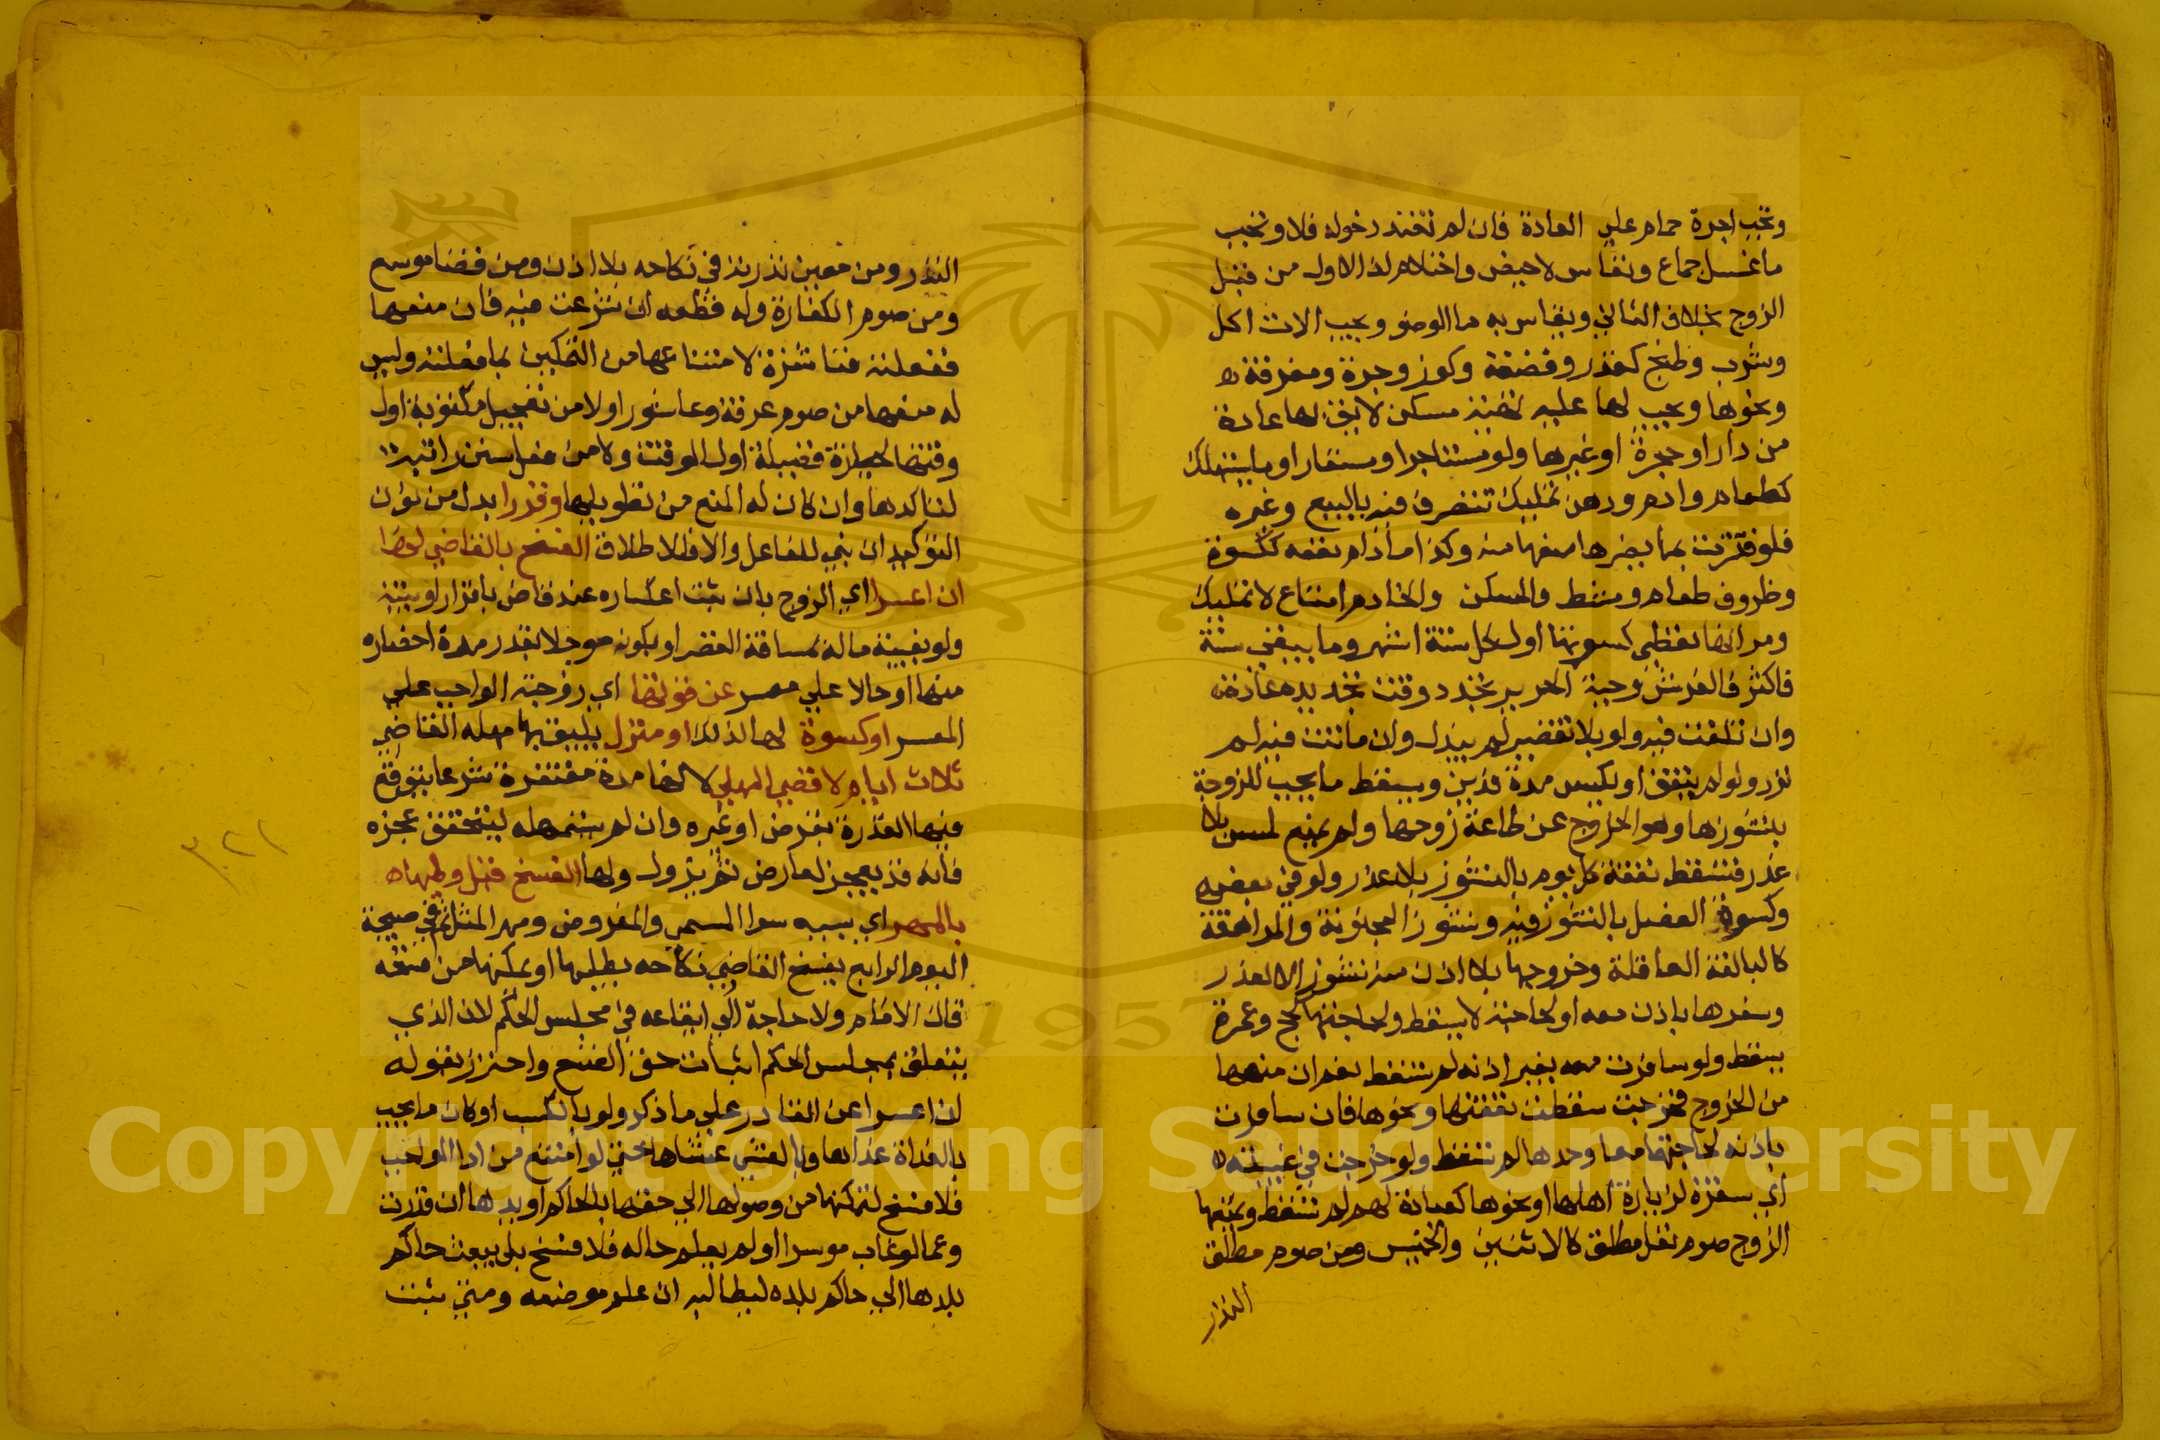 وتجب اجرة حمام علي العادة فان لم تعتد دخوله فلا وتجب
ما غسل جماع ونفاس لا حيض واحتلام لان الاول من قبل
الزوج بخلاف الثاني ويقاس به ما الوضو ويجب الات اكل
وشرب وطبخ كقدر وقصعة وكوز وجرة ومغرفة
ونحوها ويجب لها عليه تهيئة مسكن لايق لها عادة
من دار او حجرة او غيرها ولو مستاجرا او مستعارا وما يستهلك
كطعام وادم ودهن تمليك تتصرف فيه بالبيع وغيره
فلو قترت بما يضرها منعها منه وكذا ما دام نفعه ككسوة
وظروف طعام ومشط والمسكن والخادم امتاع لا تمليك
ومر انها تعطي كسوتها اول كل ستة اشهر وما يبقي سنة
فاكثر كالفرش وجبة الحرير تجدد وقت تجديده عادة
وان تلفت فيه ولو بلا تقصير لم يبدل وان ماتت فيه لم
ترد ولو لم ينفق او يكس مدة فدين ويسقط ما يجب للزوجة
بنشوزها وهو الخروج عن طاعة زوجها ولو بمنع لمس بلا
عذر فتسقط نفقة كل يوم بالنشوز بلا عذر ولو في بعضه
وكسوة الفصل بالنشوز فيه ونشوز المجنونة والمراهقة
كالبالغة العاقلة وخروجها بلا اذن منه نشوز الا لعذر
وسفرها باذن معه او لحاجته لا يسقط ولحاجتها كحج وعمرة
يسقط ولو سافرت معه بغير اذنه لم تسقط نعم ان منعها
من الخروج فخرجت سقطت نفقتها ونحوها فان سافرت
باذنه لحاجتهما معا وحدها لم تسقط ولو خرجت في غيبته
اي سفره لزيارة اهلها او نحوها كعيادة لهم لم تسقط ويمنعها
الزوج صوم نفل مطلق كالاثنين والخميس ومن صوم مطلق
النذر
النذر ومن معين نذرته في نكاحه بلا اذن ومن قضا موسع
ومن صوم الكفارة وله قطعه ان شرعت فيه فان منعها
ففعلته فناشزة لامتناعها من التمكين بما فعلته وليس
له منعها من صوم عرفة وعاشورا ولا من تعجيل مكتوبة اول
وقتها لحيازة فضيلة اول الوقت ولا من فعل سنن راتبة
لتاكدها وان كان له المنع من تطويلها وقدر ابدل من نون
التوكيد ان بني للفاعل والا فالاطلاق الفسخ بالقاضي لها
ان اعسرا اي الزوج بان ثبت اعساره عند قاض باقرار او بينة
ولو بغيبة ماله بمسافة القصر او بكونه موجلا بقدر مدة احضاره
منها او حالا علي معسر عن قوتها اي زوجته الواجب علي
المعسر او كسوة لها لذلك او منزل يليق بها مهله القاضي
ثلاث ايام لاقصي المهل لانها مدة مغتفرة شرعا يتوقع
فيها القدرة بقرض او غيره وان لم يستمهله ليتحقق عجزه
فانه قد يعجز لعارض ثم يزول ولها الفسخ قبل وطيها
بالمهر اي بسببه سوا المسمي والمفروض ومهر المثل ثم في صبيحة
اليوم الرابع يفسخ القاضي نكاحه بطلبها او يمكنها من فسخه
قال الامام ولا حاجة الي ايقاعه في مجلس الحكم لان الذي
يتعلق بمجلس الحكم اثبات حق الفسخ واحترز بقوله
ان اعسرا عن القادر علي ما ذكر ولو بالكسب او كان ما يجب
بالغداة غداها وبالعشي عشاها حتي لو امتنع من ادا الواجب
فلا فسخ لتمكنها من وصولها الي حقها بالحاكم او بيدها ان قدرت
وعما لو غاب موسرا او لم يعلم حاله فلا فسخ بل يبعث حاكم
بلدها الي حاكم بلده ليطالبه ان علم موضعه ومتي ثبت
Copyright © King Saud University
1957